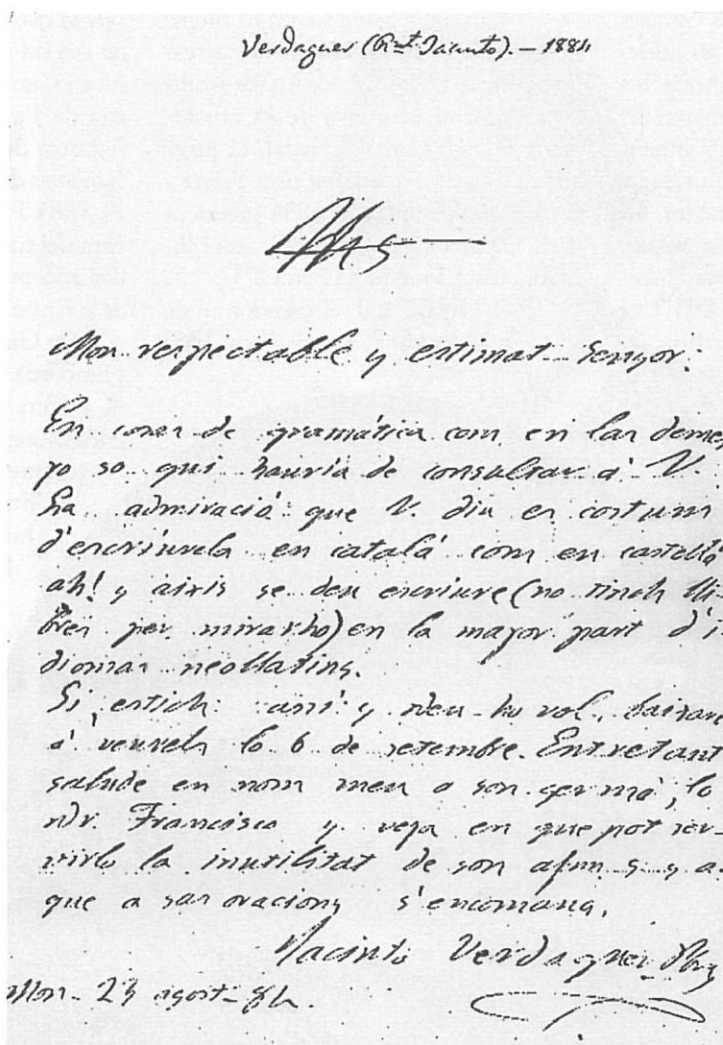 Verdaguer (Rnt. Jacinto). – 1884
JHS
Mon respectable y estimat Senyor.
En coses de gramática com en las demes
yo so qui hauria de consultar á V.
La admiració que V. diu es costum
d'escriurela en catalá com en castellá
ah! y aixis se deu escriure (no tinch lli-
bres per mirarho) en la mayor part d'i-
diomas neollatins.
Si estich aní y Deu ho vol, baixaré
á veurels lo 6 de setembre. Entretant
salude en nom meu a son germá, lo
Dr. Francisco y veja en que pot ser-
virlo la inutilitat de son afm s. y a.
que a sas oracions s'encomana,
Jacinto Verdaguer Pbre
23 agost 84.